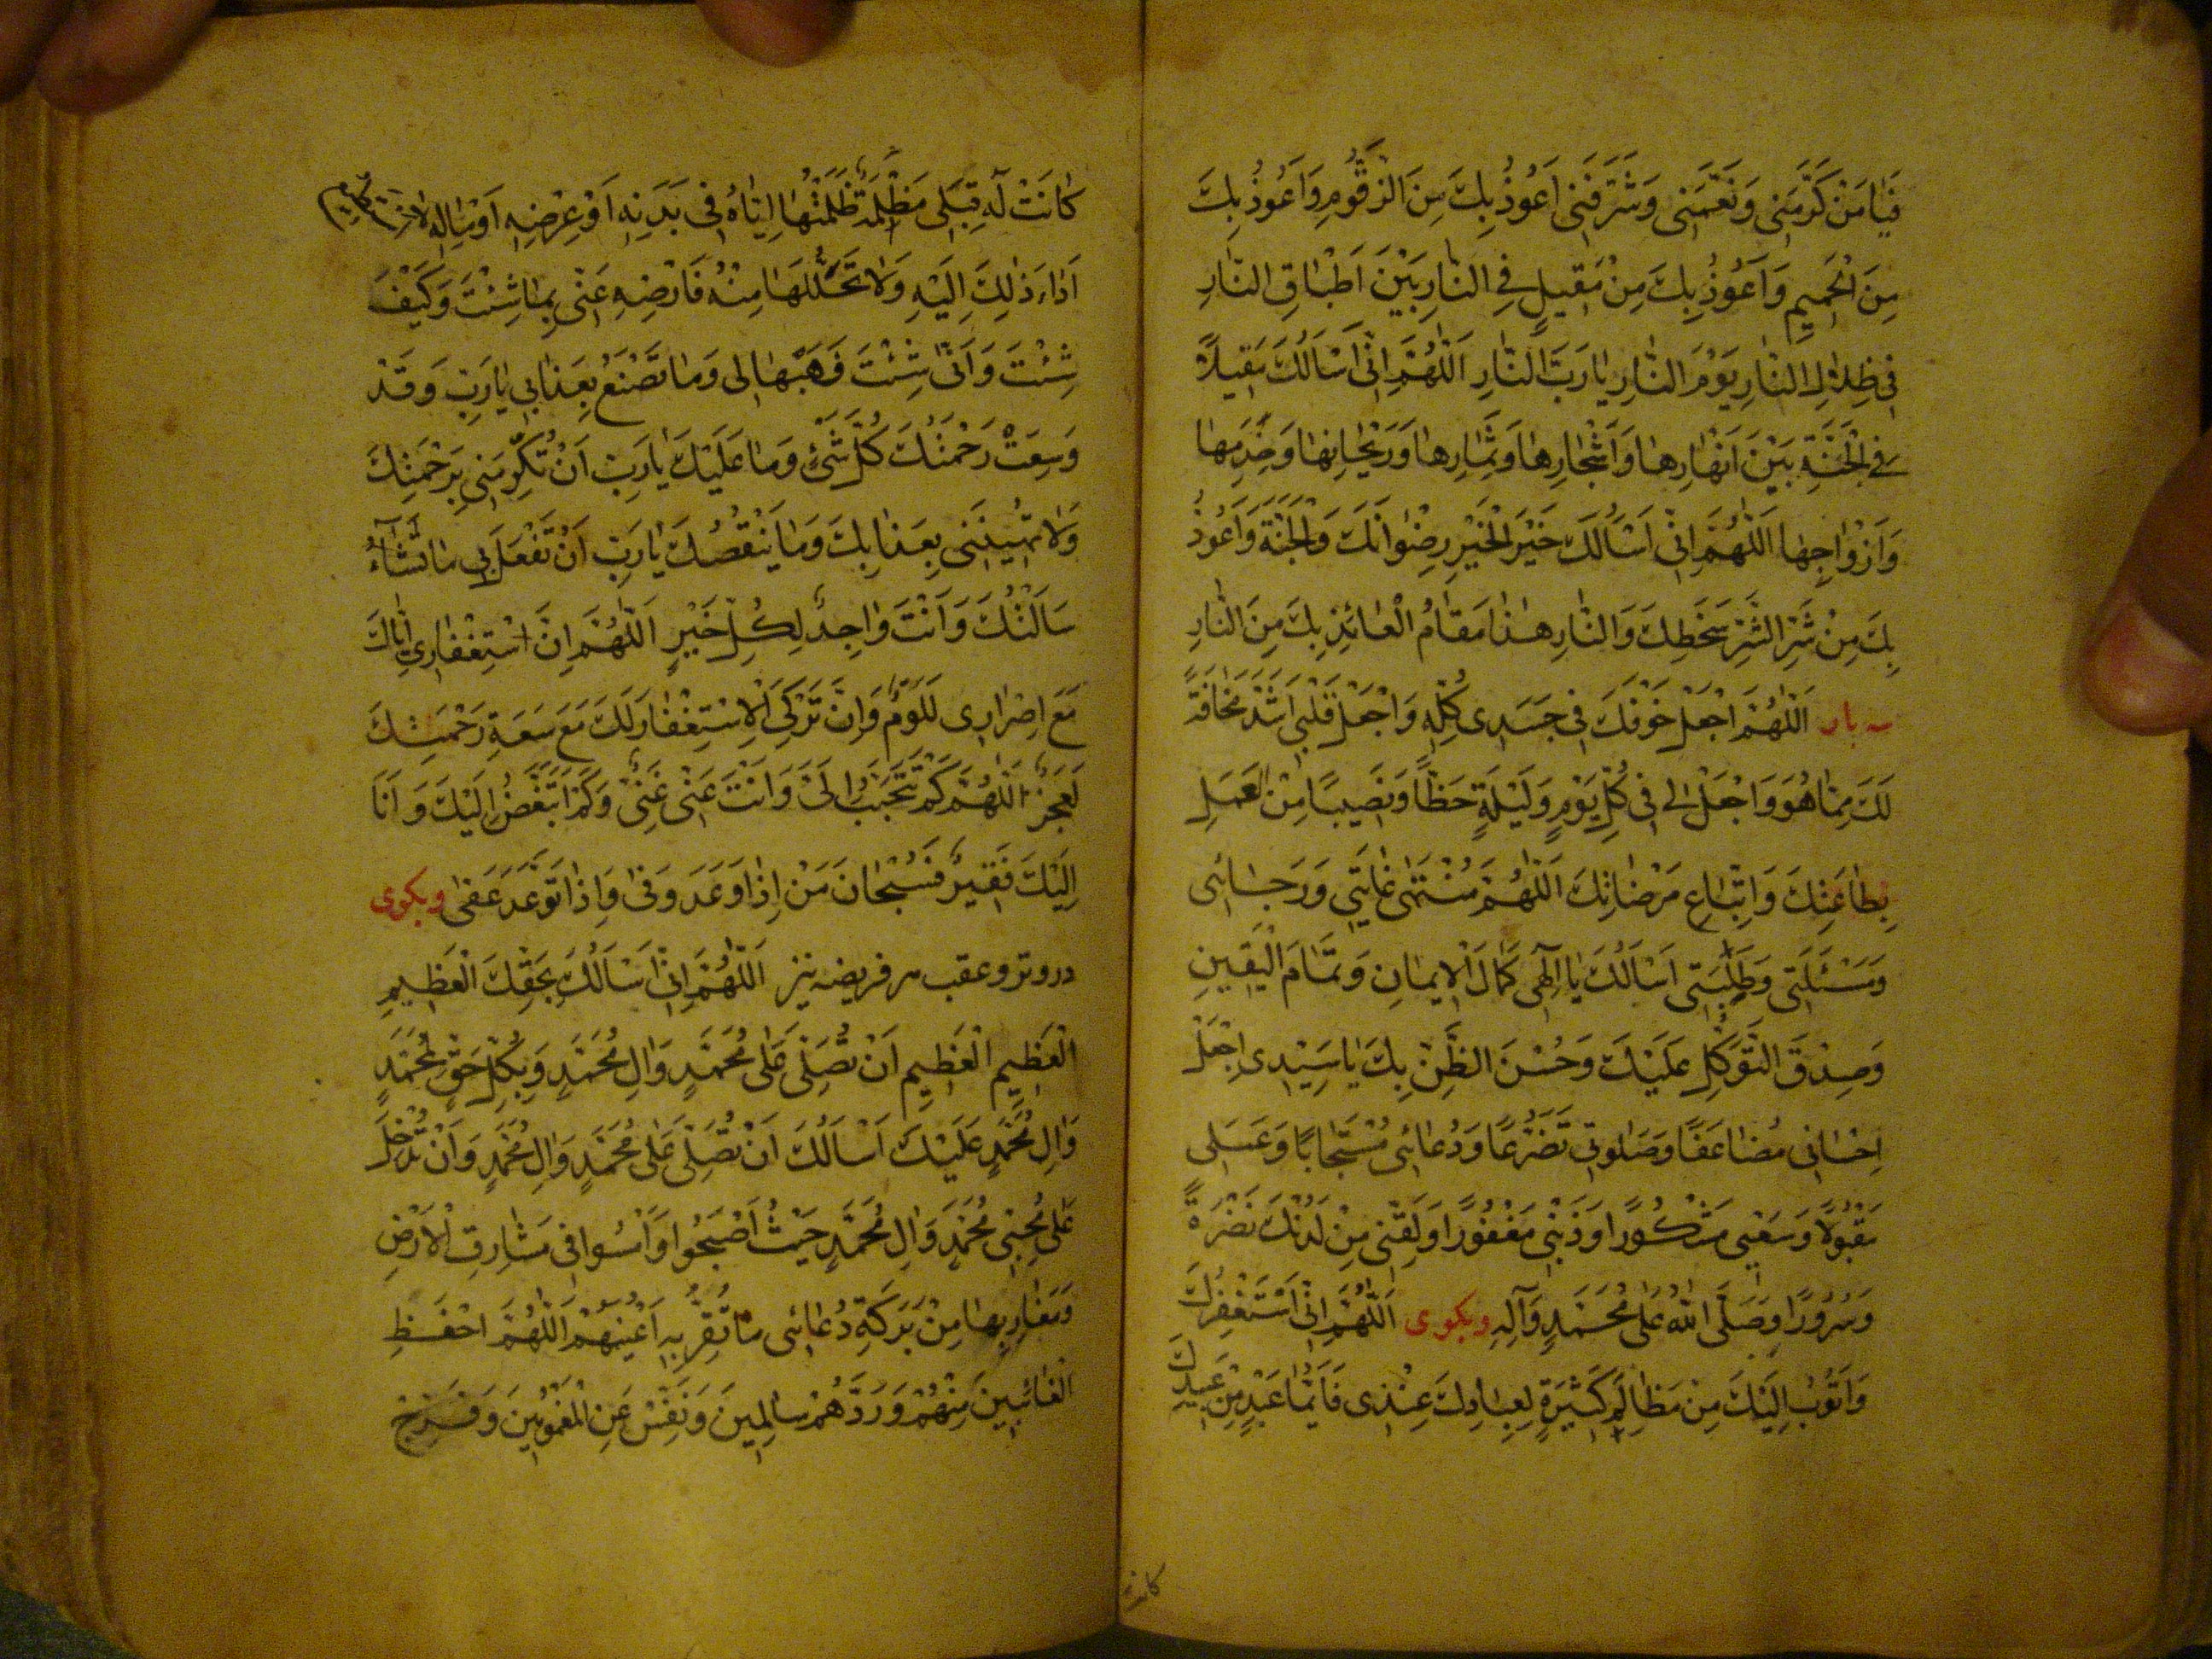 فَيٰا مَنْ كَرَّمَنى وَنَعَّمَنى وَشَرَّفَنى اَعُوذُ بِكَ مِنَ الزَّقُّومِ وَاَعُوذُ بِكَ
مِنَ الْحَميمِ وَاَعُوذُ بِكَ مِنْ مَقيلٍ فِى النّٰارِ بَيْنَ اَطْبٰاقِ النّٰارِ
فى ظِلٰالِ النّٰارِ يَوْمَ النّٰارِ يٰا رَبَّ النّٰارِ اَللّٰهُمَّ اِنّى اَسْاَلُكَ مَقيلاً
فِى الْجَنَّةِ بَيْنَ اَنْهٰارِهٰا وَاَشْجٰارِهٰا وَثِمٰارِهٰا وَرَيْحٰانِهٰا وَخَدَمِهٰا
وَاَزْوٰاجِهٰا اَللّٰهُمَّ اِنّى اَسْاَلُكَ خَيْرَ الْخَيْرِ رِضْوٰانَكَ وَالْجَنَّةَ وَاَعُوذُ
بِكَ مِنْ شَرِّ الشَّرِّ سَخَطِكَ وَالنّٰارِ هٰذٰا مَقٰامُ الْعٰائِذِ بِكَ مِنَ النّٰارِ
سه بار اَللّٰهُمَّ اجْعَلْ خَوْفَكَ فى جَسَدى كُلِّهِ وَاجْعَلْ قَلْبى اَشَدَّ مَخٰافَةً
لَكَ مِمّٰا هُوَ وَاجْعَلْ لى فى كُلِّ يَوْمٍ وَلَيْلَةٍ حَظّاً وَنَصيبًا مِنْ عَمَلِ
بِطٰاعَتِكَ وَاتِّبٰاعِ مَرْضٰاتِكَ اَللّٰهُمَّ مُنْتَهٰى غٰايَتى وَرَجٰائى
وَمَسْئَلَتى وَطَلِبَتى اَسْاَلُكَ يٰا اِلٰهى كَمٰالَ الْايمٰانِ وَتَمٰامَ الْيَقينِ
وَصِدْقَ التَّوَكُّلِ عَلَيْكَ وَحُسْنَ الظَّنِّ بِكَ يٰا سَيِّدى اِجْعَلْ
اِحْسٰانى مُضٰاعَفًا وَصَلٰوتى تَضَرُّعًا وَدُعٰائى مُسْتَجٰابًا وَعَمَلى
مَقْبُولاً وَسَعْيى مَشْكُورًا وَذَنْبى مَغْفُورًا وَلَقِّنى مِنْ لَدُنْكَ نَضْرَةً
وَسُرُورًا وَصَلَّى اللّٰهُ عَلٰى مُحَمَّدٍ وَآلِهِ وبكوى اَللّٰهُمَّ اِنّى اَسْتَغْفِرُكَ
وَاَتُوبُ اِلَيْكَ مِنْ مَظٰالِمَ كَثيرَةٍ لِعِبٰادِكَ عِنْدى فَاَيُّمٰا عَبْدٍ مِنْ عَبيدِكَ
كانت
كٰانَتْ لَهُ قِبَلى مَظْلِمَةٌ ظَلَمْتُهٰا اِيّٰاهُ فى بَدَنِهِ اَوْ عِرْضِهِ اَوْ مٰالِهِ لٰا
اَدٰاءَ ذٰلِكَ اِلَيْهِ وَلٰا تَحَلُّلَهٰا مِنْهُ فَاَرْضِهِ عَنّى بِمٰا شِئْتَ وَكَيْفَ
شِئْتَ وَاَنّٰى شِئْتَ فَهَبْهٰا لى وَمٰا تَصْنَعُ بِعَذٰابى يٰا رَبِّ وَقَدْ
وَسِعَتْ رَحْمَتُكَ كُلَّ شَئٍ وَمٰا عَلَيْكَ يٰا رَبِّ اَنْ تُكْرِمَنى بِرَحْمَتِكَ
وَلٰا تُهينَنى بِعَذٰابِكَ وَمٰا يَنْقُصُكَ يٰا رَبِّ اَنْ تَفْعَلَ بى مٰا تَشٰاءُ
سَاَلْتُكَ وَاَنْتَ وٰاجِدٌ لِكُلِّ خَيْرٍ اَللّٰهُمَّ اِنَّ اسْتِغْفٰارى اِيّٰاكَ
مَعَ اِصْرٰارى لَلَوْمٌ وَاِنَّ تَرْكِىَ الْاِسْتِغْفٰارَ لَكَ مَعَ سَعَةِ رَحْمَتِكَ
لَعَجْزٌ اَللّٰهُمَّ كَمْ تَتَحَبَّبُ اِلَىَّ وَاَنْتَ عَنّى غَنِىٌّ وَكَمْ اَتَبَغَّضُ اِلَيْكَ وَاَنَا
اِلَيْكَ فَقيرٌ فَسُبْحٰانَ مَنْ اِذٰا وَعَدَ وَفٰى وَاِذٰا تَوَعَّدَ عَفٰى وبكوى
در وتر وعقب هر فريضه نيز اَللّٰهُمَّ اِنّى اَسْاَلُكَ بِحَقِّكَ الْعَظيمِ
الْعَظيمِ الْعَظيمِ اَنْ تُصَلِّىَ عَلٰى مُحَمَّدٍ وَاٰلِ مُحَمَّدٍ وَبِكُلِّ حَقٍّ مُحَمَّدٍ
وَاٰلِ مُحَمَّدٍ عَلَيْكَ اَسْاَلُكَ اَنْ تُصَلِّىَ عَلٰى مُحَمَّدٍ وَاٰلِ مُحَمَّدٍ وَاَنْ تُدْخِلَ
عَلٰى مُحِبّى مُحَمَّدٍ وَاٰلِ مُحَمَّدٍ حَيْثُ اَصْبَحُوا وَاَمْسَوا فى مَشٰارِقِ الْاَرْضِ
وَمَغٰارِبِهٰا مِنْ بَرَكَةِ دُعٰائى مٰا تَقِرُّ بِهِ اَعْيُنُهُمْ اَللّٰهُمَّ احْفَظِ
الْغٰائِبينَ مِنْهُمْ وَرُدَّهُمْ سٰالِمينَ وَنَفِّسْ عَنِ الْمَغْمُومينَ وَفَرِّجْ